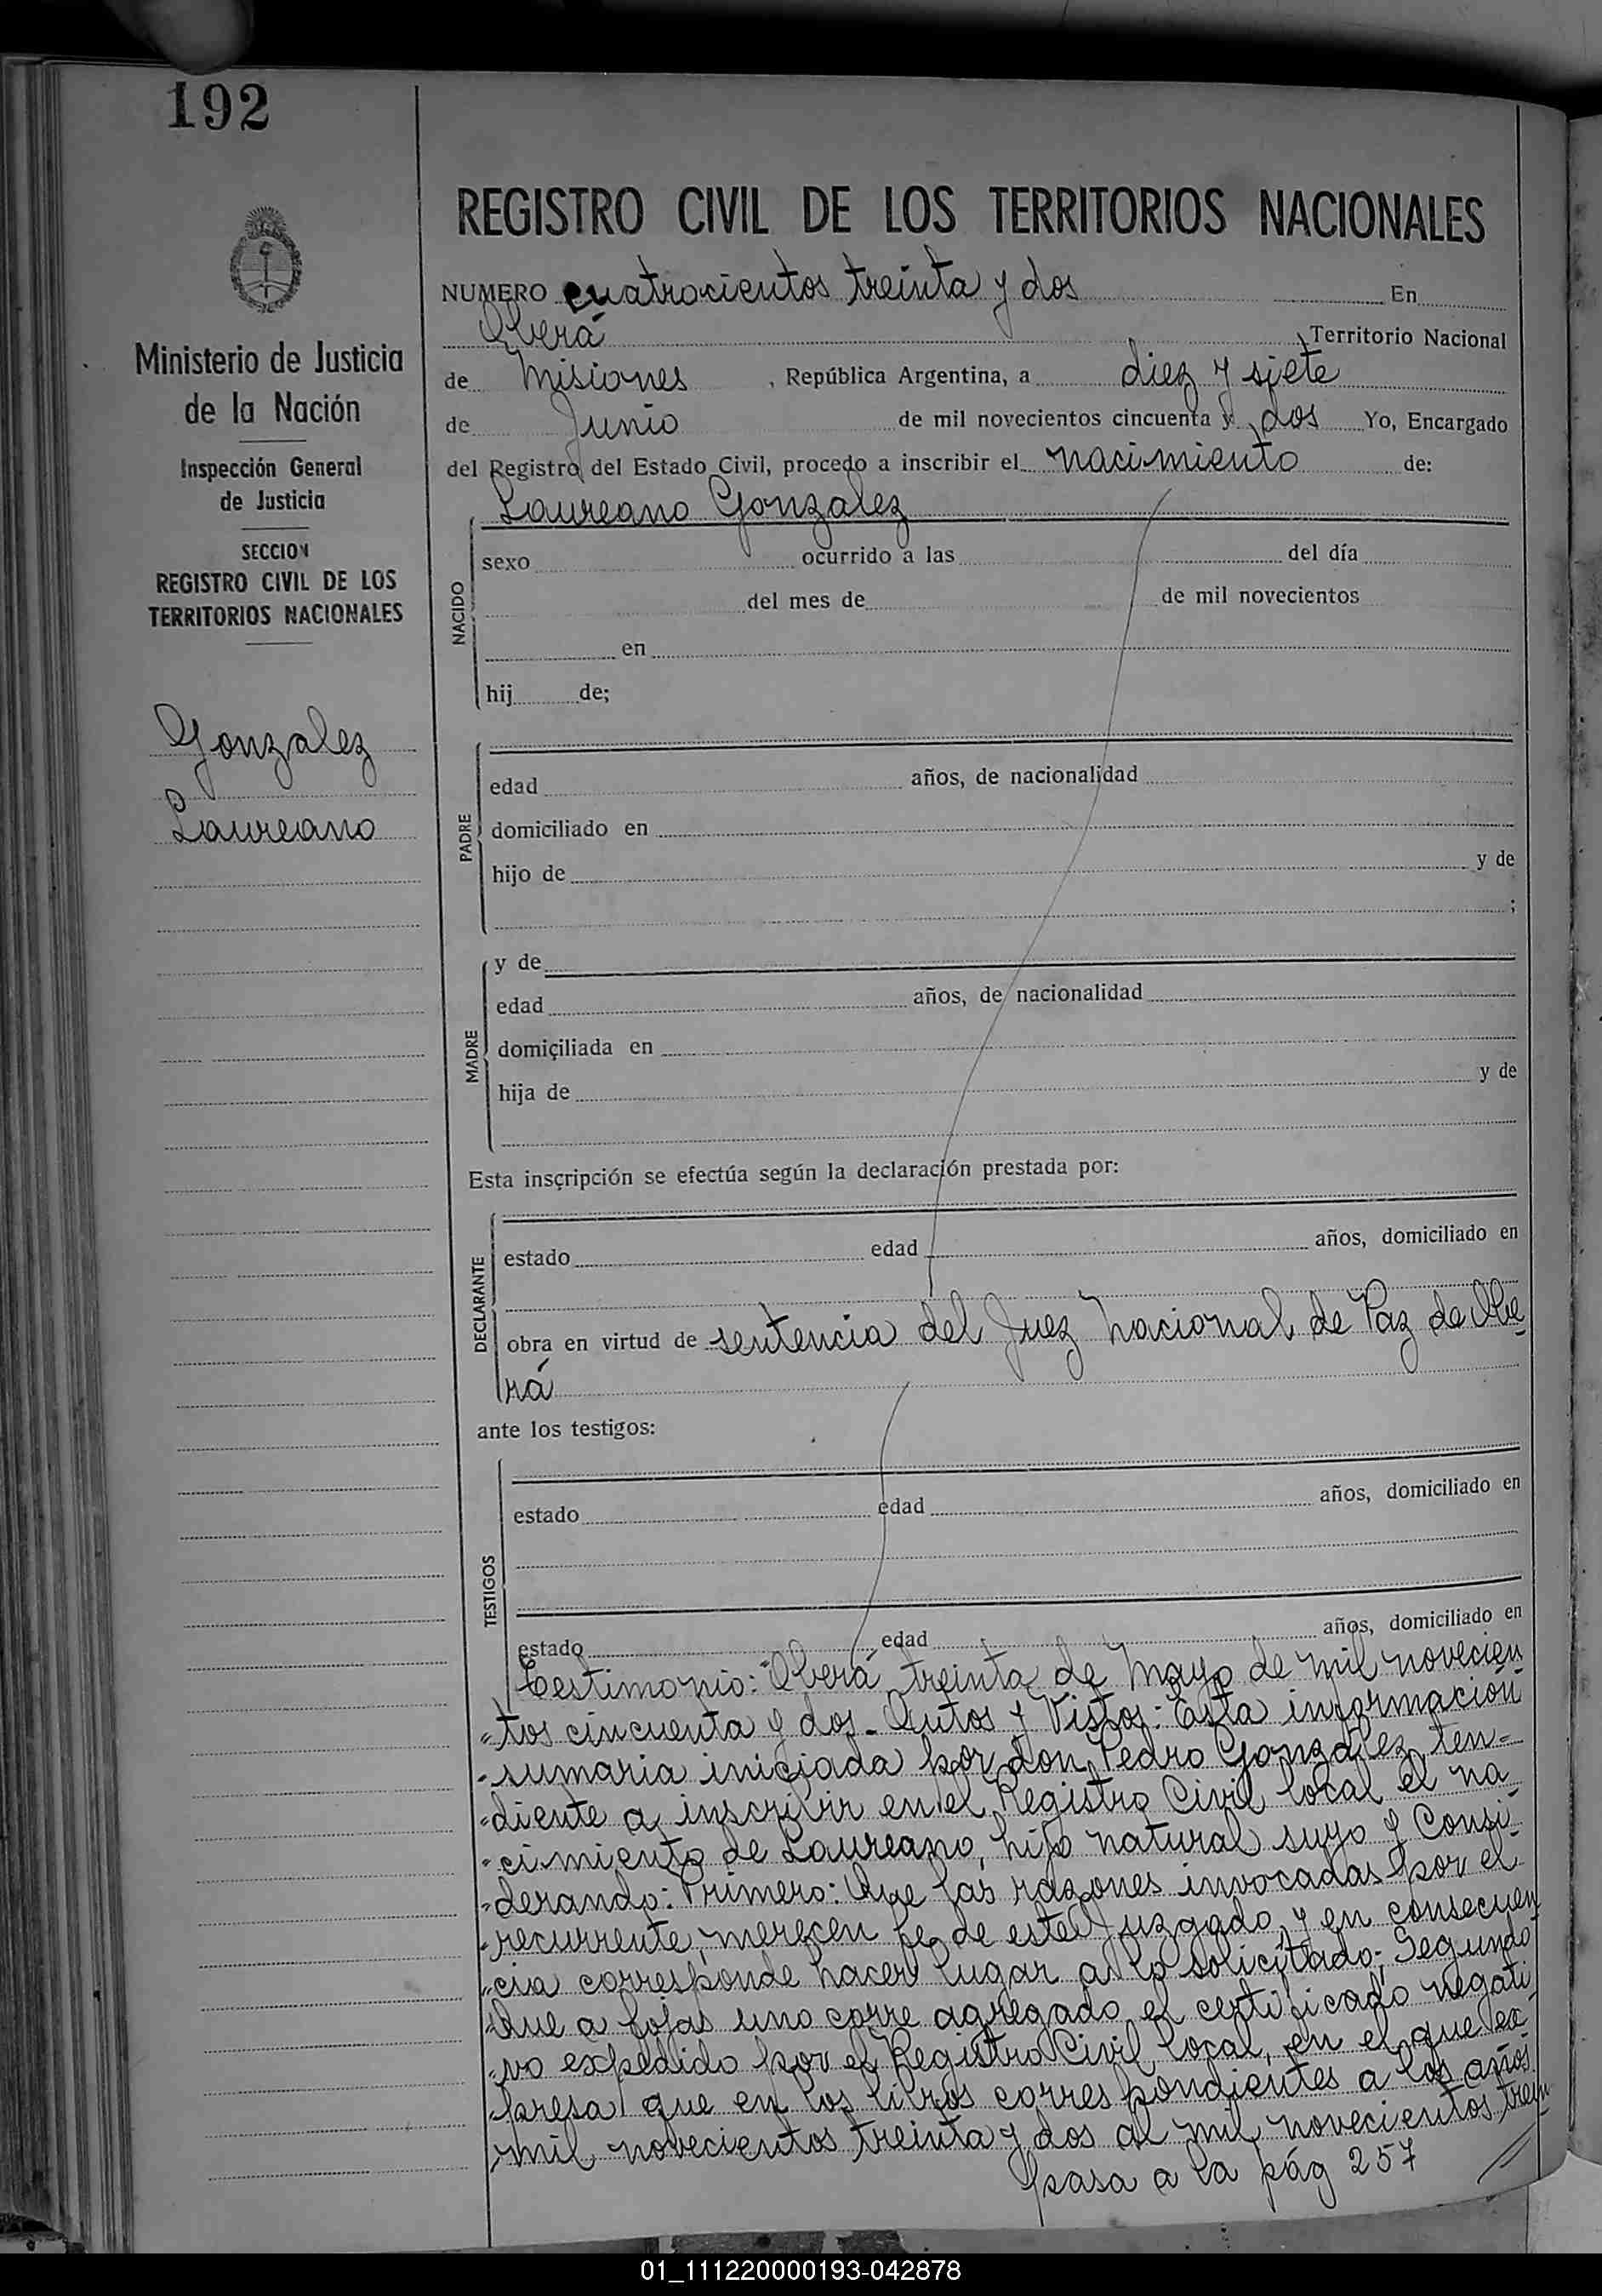 192
REGISTRO CIVIL DE LOS TERRITORIOS NACIONALES
NUMERO cuatrocientos treinta y dos En
Oberá Territorio Nacional
de Misiones , República Argentina, a diez y siete
de Junio de mil novecientos cincuenta y dos Yo, Encargado
del Registro del Estado Civil, procedo a inscribir el nacimiento de:
Laureano Gonzalez
Ministerio de Justicia
de la Nación
Inspección General
de Justicia
SECCION
REGISTRO CIVIL DE LOS
TERRITORIOS NACIONALES
Gonzalez
Laureano
NACIDO
sexo ocurrido a las del día
del mes de de mil novecientos
en
hij de;
PADRE
edad años, de nacionalidad
domiciliado en
hijo de y de
;
MADRE
y de
edad años, de nacionalidad
domiciliada en
hija de y de
Esta inscripción se efectúa según la declaración prestada por:
DECLARANTE
estado edad años, domiciliado en
obra en virtud de sentencia del Juez Nacional de Paz de Obe
rá
ante los testigos:
TESTIGOS
estado edad años, domiciliado en
estado edad años, domiciliado en
Testimonio: "Oberá, treinta de Mayo de mil novecien
"tos cincuenta y dos - Autos y Vistos: Esta información
"sumaria iniciada por don Pedro Gonzalez, ten-
"diente a inscribir en el Registro Civil local el na
"cimiento de Laureano, hijo natural suyo y Consi
"derando: Primero: Que las razones invocadas por el
"recurrente, merecen fe de este Juzgado, y en consecuen
"cia corresponde hacer lugar a lo solicitado; Segundo
"Que a fojas uno corre agregado el certificado negati
"vo expedido por el Registro Civil local, en el que ex
"presa que en los libros correspondientes a los años
"mil novecientos treinta y dos al mil novecientos trein
pasa a la pág 257
01_111220000193-042878